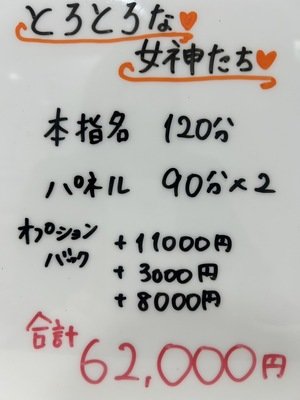 とろとろな
女神たち
本指名 120分
パネル 90分×2
オプション
バック
+11000円
+3000円
+8000円
合計
62,000円